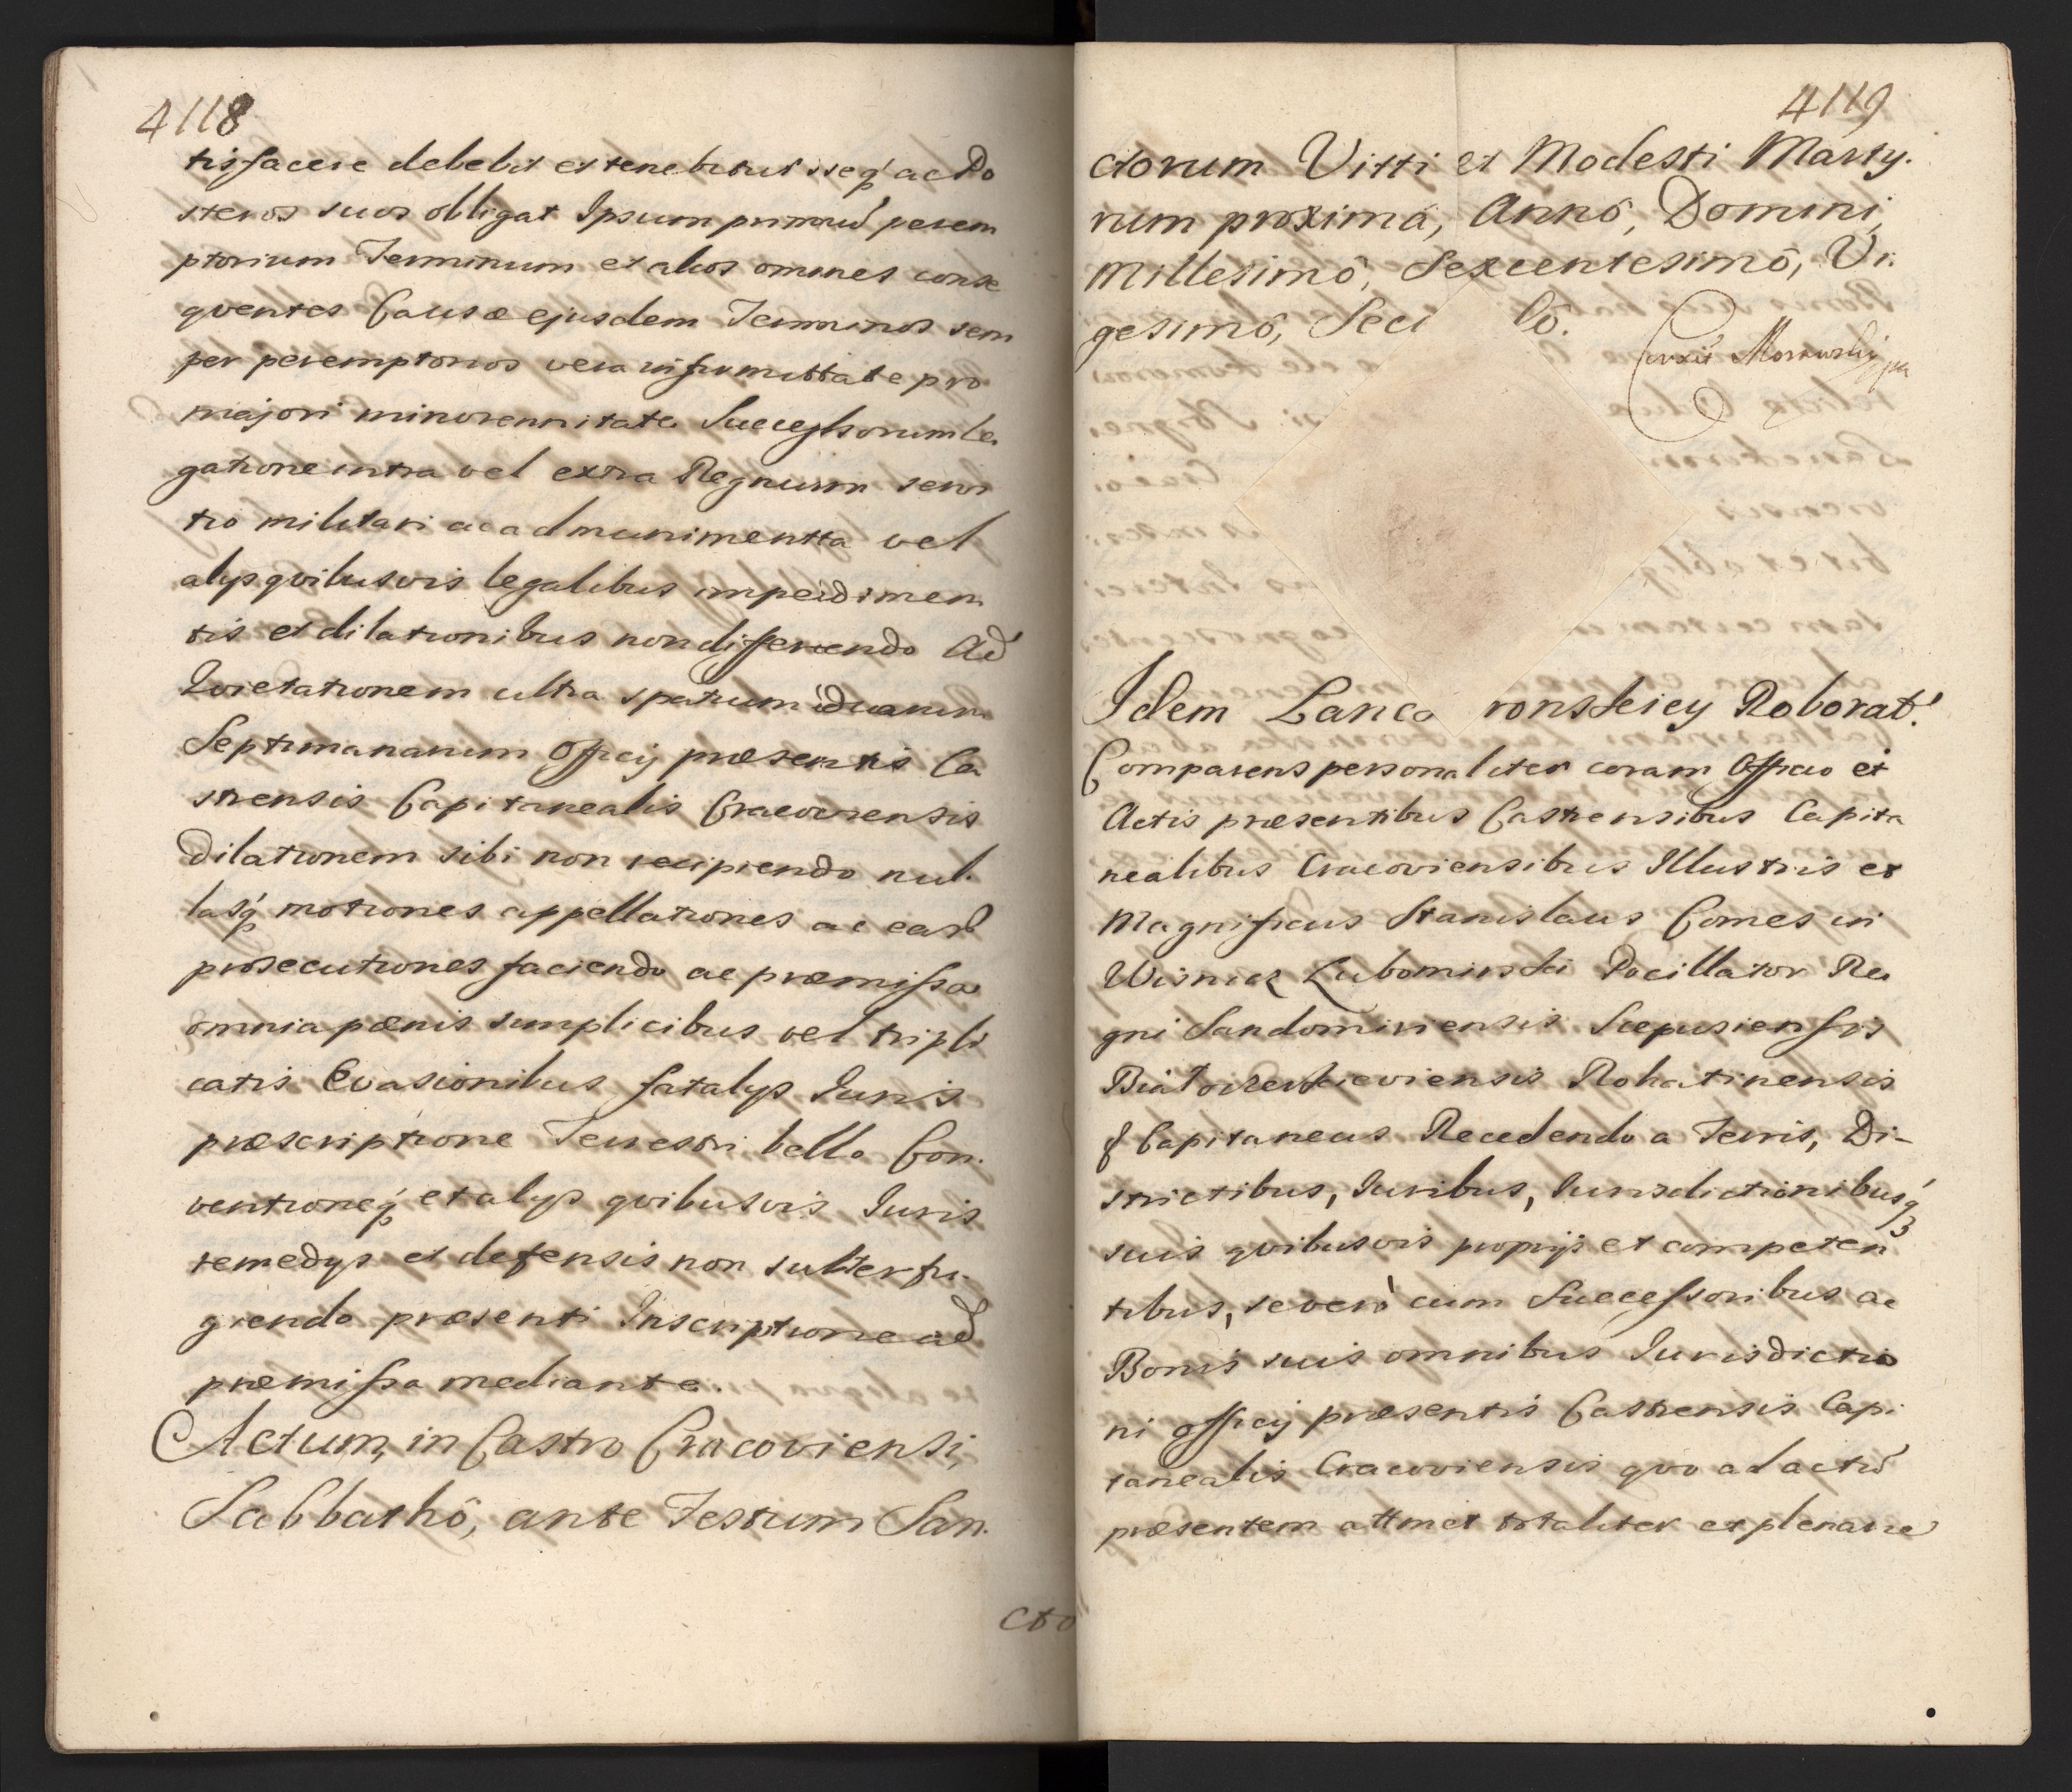 4118
tisfacere debebit et tenebitur seq́ ac Po
steros suos obligat Ipsum primum perem
ptorium Terminum et alios omnes conse
qventes Causæ ejusdem Terminos sem
per peremptorios vera infirmittate pro
majori minorennitate Successorum le
gatione intra vel extra Regnum servi
tio militari ac ad munimentta vel
alijs qvibusvis legalibus impedimen
tis et dilationibus non differendo Ad
Qvietationem ultra spatium duarum
Septimanarum Officij præsentis Ca
strensis Capitanealis Cracoviensis
Dilationem sibi non recipiendo nul
lasq́ motiones appellationes ac earũ
prosecutiones faciendo ac præmissa
omnia pænis simplicibus vel tripli
catis Evasionibus fatalijs Juris
præscriptione Terrestri bello Con
ventioneq́ et alijs qvibusvis Juris
remedijs et defensis non subterfu
giendo præsenti Inscriptione ad
præmissa mediante.
Actum, in Castro Cracoviensi,
Sabbathô, ante Festum San.
cto
4119
ctorum Vitti et Modesti Marty.
rum proximâ, Annô, Domini,
Millesimô, Sexcentesimô, Vi.
gesimô, Sec dô.
Morawski
Idem Lanco ronskiey Roborat.
Comparens personaliter coram Officio et
Actis præsentibus Castrensibus Capita
nealibus Cracoviensibus Illustris et
Magnificus Stanislaus Comes in
Wisnicz Lubomirski Pocillator Re
gni Sandomiriensis Scepusiensis
Białocerkieviensis Rohatinensis
& Capitaneus Recedendo a Terris, Di-
strictibus, Juribus, Jurisdictionibusq́
suis qvibusvis proprijs et competen
tibus, se verò cum Successoribus ac
Bonis suis omnibus Jurisdictio
ni Officij præsentis Castrensis Capi
tanealis Cracoviensis qvo ad actũ
præsentem attinet totaliter et plenarie